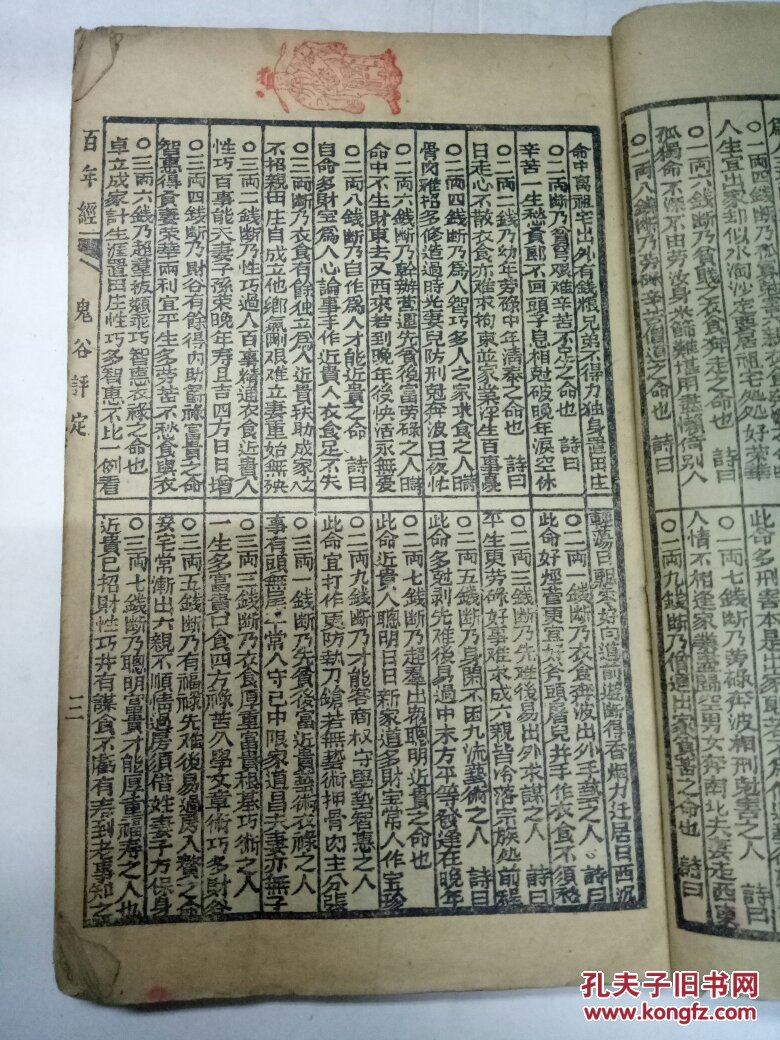 人生宜出家却似水淘沙宅要居祖宅処処好榮華
〇一両六錢断乃貧賤乞衣食奔走之命也　詩曰
孤獨命不深不由劳波身米篩難堪用盡懶倚别人
〇一両八錢断乃劳碌辛苦僧道之命也　詩曰
此命多刑害本是出家
〇一両七錢断乃劳碌奔波相刑尅害之人　詩曰
人情不相逢家業盡歸空男女奔南北夫妻走西東
〇一両九錢断乃僧道出家貧苦之命也　詩曰
命中离祖宅出外有錢粮兄弟不得力独身置田庄
〇二両断乃貧窮艰難辛苦不足之命也　詩曰
辛苦一生愁貧郎不回頭子息相尅破晚年淚空休
〇二両二錢断乃幼年劳碌中年清泰之命也　詩曰
日走心不散衣食亦难求拘束並家業浮生百事憂
〇二両四錢断乃爲人智巧多人之家求食之人詩曰
骨肉难招多修造過時光妻兒防刑尅奔波日夜忙
〇二両六錢断乃幹辦营運先貧後富劳碌之人詩曰
命中不生財東去又西來若到晚年後快活永無憂
〇二両八錢断乃自作爲人才能近貴之命也　詩曰
自命多財宝爲人心論事手作近貴人衣食足不失
〇三両断乃衣食有餘独立爲人近貴扶助成家之人
不招親田庄自成立他鄉氣剛艰难立妻重始無殃
〇三両二錢断乃性巧過人百事精通衣食近貴人
性巧百事能夫妻子孫荣晚年寿且吉四方日日增
〇三両四錢断乃財谷有餘得内助爵祿富貴之命
智惠得貧妻荣華両利宜平生多劳苦不愁食與衣
〇三両六錢乃超羣拔類乖巧智惠衣祿之命也
卓立成家計生涯置田庄性巧多智惠不比一例看
日飄來好向道前遊断得香烟力迁居日西沉
〇二両一錢断乃衣食奔波出外手藝之人　詩曰
此命好經营更宜好斧頭屠兒并手作衣食不須愁
〇二両三錢断乃先难後易出外求謀之人　詩曰
平生更劳碌好事难求成六親皆冷落宗族処前程
〇二両五錢断乃身閑不困九流藝術之人　詩曰
此命多尅剥先难後易過中末方平等發達在晚年
〇二両七錢断乃超羣出衆聰明近貴之命也　詩曰
此命近貴人聰明日日新家道多財宝常人作宝珍
〇二両九錢断乃才能客商权守學藝智惠之人
此命宜打作更防執刀鎗若無藝術押骨肉主分張
〇三両一錢断乃先貧後富近貴藝術衣祿之人
事有頭無尾平常人守己中限家道昌夫妻亦無子
〇三両三錢断乃衣食厚重富貴根基巧術之人
一生多富貴口食四方祿苦久學文章術巧多財谷
〇三両五錢断乃有福祿先难後易過房入贅之命
妥宅常漸出六親不順情過房須借姓妻子方保身
〇三両七錢断乃聰明富貴才能厚重福寿之人也
近貴已招財性巧并有謀食不虧有寿到老事知之
百年經
鬼谷評定
三
孔夫子旧书网
www.kongfz.com